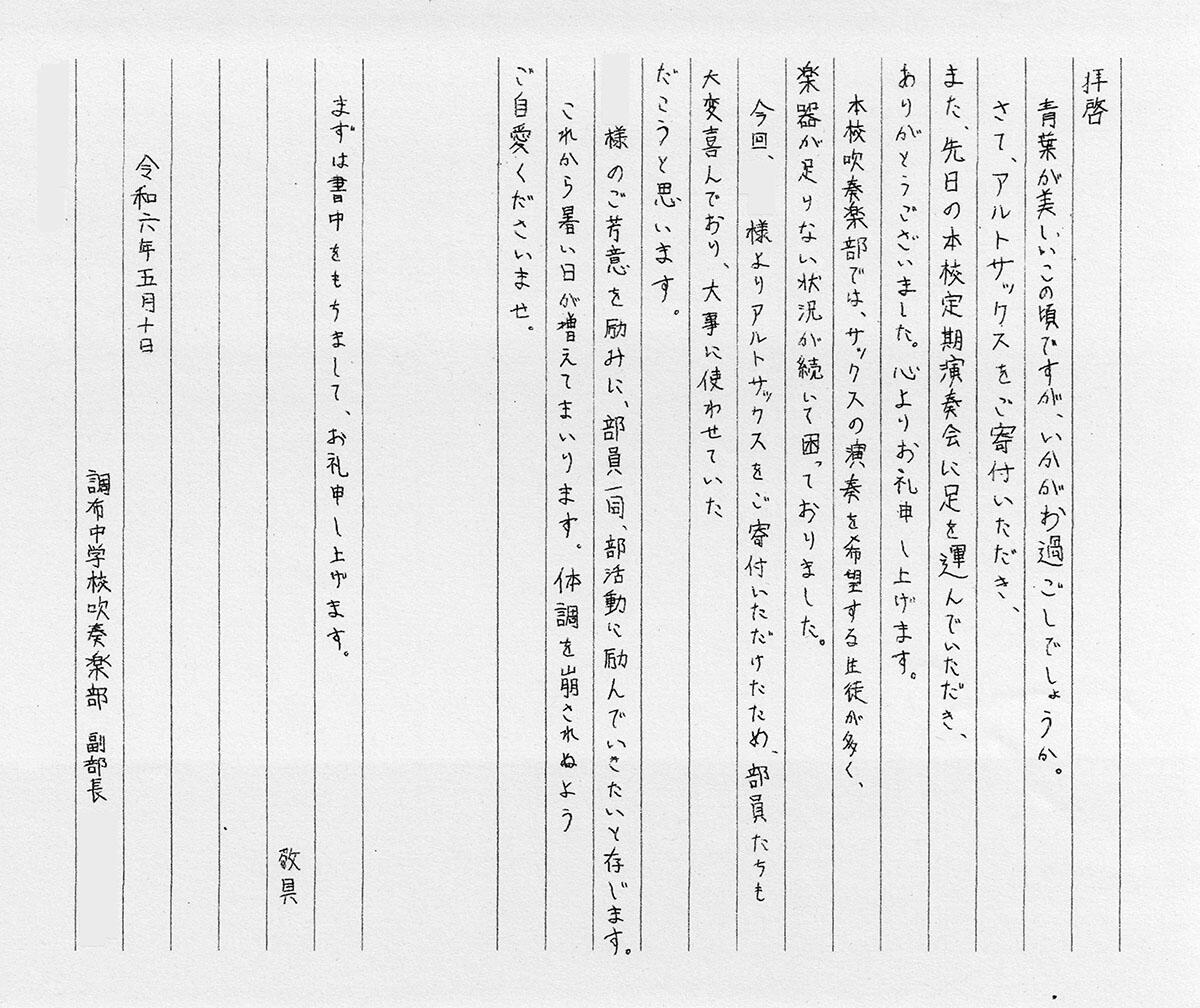 拝啓
青葉が美しいこの頃ですが、いかがお過ごしでしょうか。
さて、アルトサックスをご寄付いただき、
また、先日の本校定期演奏会に足を運んでいただき、
ありがとうございました。心よりお礼申し上げます。
本校吹奏楽部では、サックスの演奏を希望する生徒が多く、
楽器が足りない状況が続いて困っておりました。
今回、様よりアルトサックスをご寄付いただけたため、部員たちも
大変喜んでおり、大事に使わせていた
だこうと思います。
様のご芳意を励みに、部員一同、部活動に励んでいきたいと存じます。
これから暑い日が増えてまいります。体調を崩されぬよう
ご自愛くださいませ。
まずは書中をもちまして、お礼申し上げます。
敬具
令和六年五月十日
調布中学校吹奏楽部 副部長